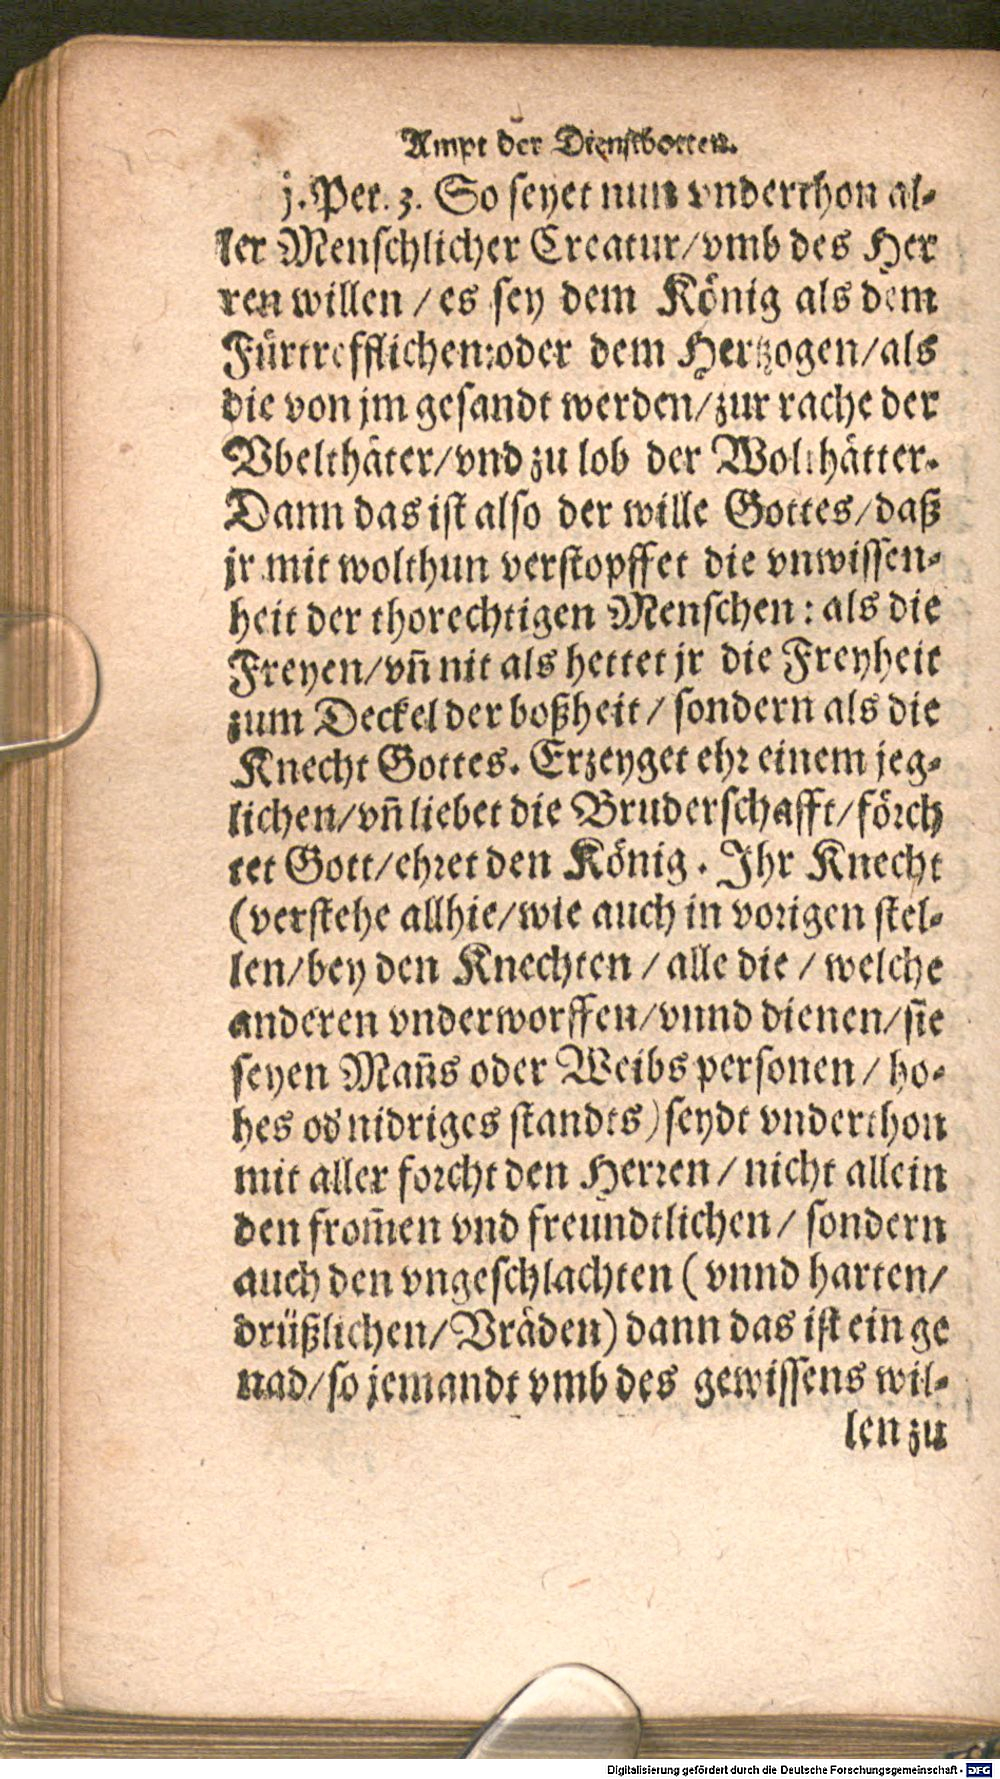 Ampt der Dienstbotten.
j. Pet. 3. So seyet nun vnderthon al-
ler Menschlicher Creatur/vmb des Her
ren willen / es sey dem König als dem
Fürtrefflichen:oder dem Hertzogen/als
die von jm gesandt werden/zur rache der
Vbelthäter/vnd zu lob der Wolthätter.
Dann das ist also der wille Gottes/daß
jr mit wolthun verstopffet die vnwissen-
heit der thorechtigen Menschen : als die
Freyen/vñ nit als hettet jr die Freyheit
zum Deckel der boßheit / sondern als die
Knecht Gottes. Erzeyget ehr einem jeg-
lichen/vñ liebet die Bruderschafft/förch
tet Gott/ehret den König . Ihr Knecht
(verstehe allhie/wie auch in vorigen stel-
len/bey den Knechten / alle die / welche
anderen vnderworffen/vnnd dienen/sie
seyen Mañs oder Weibs personen / ho-
hes od nidriges standts) seydt vnderthon
mit aller forcht den Herren / nicht allein
den from̃en vnd freundtlichen / sondern
auch den vngeschlachten ( vnnd harten/
drüßlichen/Vräden) dann das ist ein ge
nad/so jemandt vmb des gewissens wil-
len zu
Digitalisierung gefördert durch die Deutsche Forschungsgemeinschaft - DFG